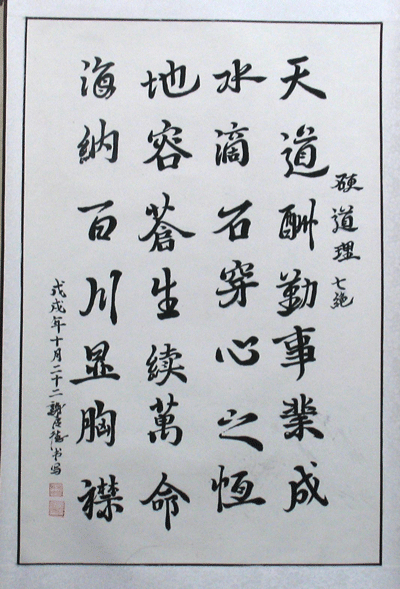 硬道理 七绝
天道酬勤事業成
水滴石穿心之恆
地容蒼生續萬命
海納百川显胸襟
戊戌年十月二十二 书写